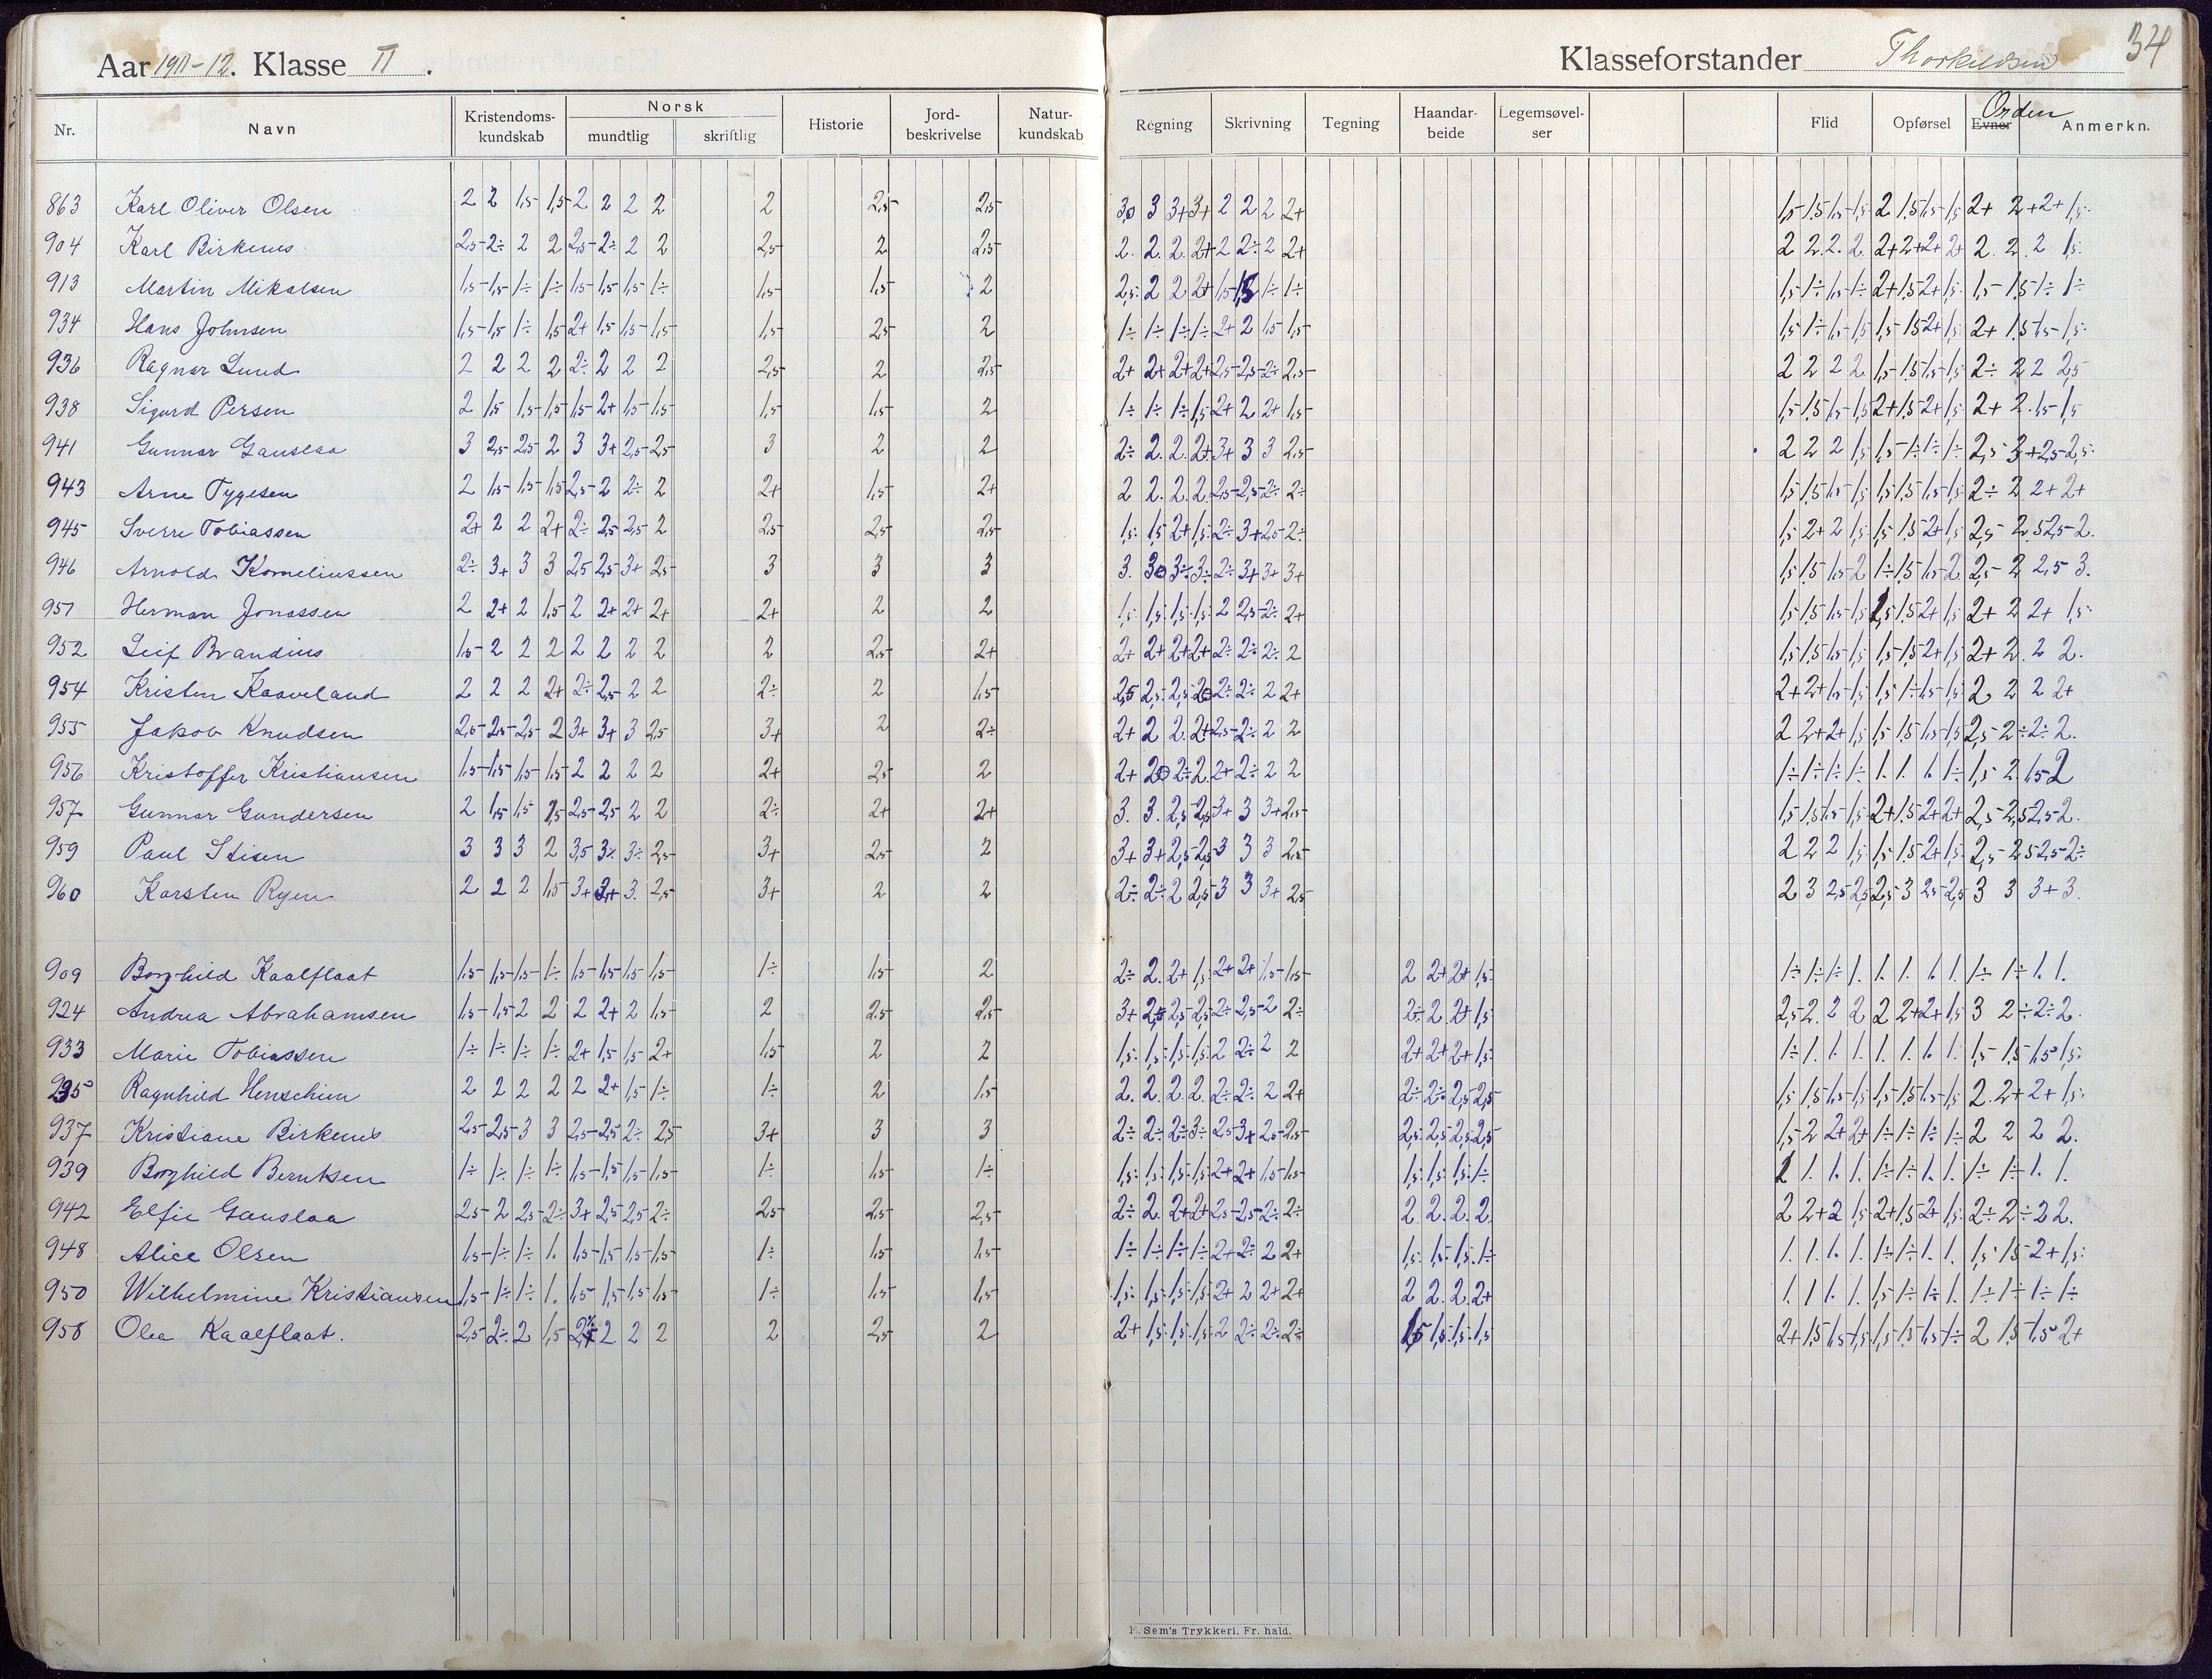 Aar 1911-12. Klasse II.
Klasseforstander Thorkildsen 34
Nr. Navn Kristendoms-kundskab Norsk mundtlig skriftlig Historie Jord-beskrivelse Natur-kundskab Regning Skrivning Tegning Haandar-beide Legemsøvel-ser Flid Opførsel Evner Orden Anmerkn.
863 Karl Oliver Olsen 2 2 1,5 1,5 2 2 2 2 2 2,5 2,5 3,0 3 3+ 3+ 2 2 2 2+ 1,5 1,5 1,5 1,5 2 1,5 1,5 1,5 2+ 2+ 2+ 1,5
904 Karl Birkenes 2,5 2÷ 2 2 2,5 2÷ 2 2 2,5 2 2,5 2. 2. 2. 2+ 2 2÷ 2 2+ 2 2. 2. 2. 2+ 2+ 2+ 2+ 2. 2. 2 1,5
913 Martin Mikalsen 1,5 1,5 1÷ 1÷ 1,5 1,5 1,5 1÷ 1,5 1,5 2 2,5 2 2 2+ 1,5 1,5 1÷ 1÷ 1,5 1÷ 1,5 1÷ 2+ 1,5 2+ 1,5 1,5 1,5 1÷ 1÷
934 Hans Johnsen 1,5 1,5 1÷ 1,5 2+ 1,5 1,5 1,5 1,5 2,5 2 1÷ 1÷ 1÷ 1÷ 2+ 2 1,5 1,5 1,5 1÷ 1,5 1,5 1,5 1,5 2+ 1,5 2+ 1,5 1,5 1,5
936 Ragnar Lund 2 2 2 2 2÷ 2 2 2 2,5 2 2,5 2+ 2+ 2+ 2+ 2,5 2,5 2÷ 2,5 2 2 2 2 1,5 1,5 1,5 1,5 2÷ 2 2 2,5
938 Sigurd Persen 2 1,5 1,5 1,5 1,5 2+ 1,5 1,5 1,5 1,5 2 1÷ 1÷ 1÷ 1,5 2+ 2 2+ 1,5 1,5 1,5 1,5 1,5 2+ 1,5 2+ 1,5 2+ 2. 1,5 1,5
941 Gunnar Gauslaa 3 2,5 2,5 2 3 3+ 2,5 2,5 3 2 2 2÷ 2. 2. 2+ 3+ 3 3 2,5 2 2 2 1,5 1,5 1÷ 1÷ 1÷ 2,5 3+ 2,5 2,5
943 Arne Tygesen 2 1,5 1,5 1,5 2,5 2 2÷ 2 2+ 1,5 2+ 2 2. 2. 2. 2,5 2,5 2÷ 2÷ 1,5 1,5 1,5 1,5 1,5 1,5 1,5 1,5 2÷ 2 2+ 2+
945 Sverre Tobiassen 2+ 2 2 2+ 2÷ 2,5 2,5 2 2,5 2,5 2,5 1,5 1,5 2+ 1,5 2÷ 3+ 2,5 2÷ 1,5 2+ 2 1,5 1,5 1,5 2+ 1,5 2,5 2,5 2,5 2.
946 Arnold Korneliussen 2÷ 3+ 3 3 2,5 2,5 3+ 2,5 3 3 3 3. 30 3÷ 3÷ 2÷ 3+ 3+ 3+ 1,5 1,5 1,5 2 1÷ 1,5 1,5 2 2,5 2 2,5 3.
951 Herman Jonassen 2 2+ 2 1,5 2 2+ 2+ 2+ 2+ 2 2 1,5 1,5 1,5 1,5 2 2,5 2÷ 2+ 1,5 1,5 1,5 1,5 1,5 1,5 2+ 1,5 2+ 2 2+ 1,5
952 Leif Brandius 1,5 2 2 2 2 2 2 2 2 2,5 2+ 2+ 2+ 2+ 2+ 2÷ 2÷ 2÷ 2 1,5 1,5 1,5 1,5 1,5 1,5 2+ 1,5 2+ 2. 2 2.
954 Kristen Kaaveland 2 2 2 2+ 2÷ 2,5 2 2 2÷ 2 1,5 2,5 2,5 2,5 20 2÷ 2÷ 2 2+ 2+ 2+ 1,5 1,5 1,5 1÷ 1,5 1,5 2. 2 2 2+
955 Jakob Knudsen 2,5 2,5 2,5 2 3+ 3+ 3 2,5 3+ 2 2÷ 2+ 2 2. 2+ 2,5 2÷ 2 2 2 2+ 2+ 1,5 1,5 1,5 1,5 1,5 2,5 2÷ 2÷ 2.
956 Kristoffer Kristiansen 1,5 1,5 1,5 1,5 2 2 2 2 2+ 2,5 2 2+ 20 2÷ 2. 2+ 2÷ 2 2 1÷ 1÷ 1÷ 1÷ 1. 1. 1. 1÷ 1,5 2. 1,5 2
957 Gunnar Gundersen 2 1,5 1,5 1,5 2,5 2,5 2 2 2÷ 2+ 2+ 3. 3. 2,5 2,5 3+ 3 3+ 2,5 1,5 1,5 1,5 1,5 2+ 1,5 2+ 2+ 2,5 2,5 2,5 2.
959 Paul Stisen 3 3 3 2 3,5 3÷ 3÷ 2,5 3+ 2,5 2 3+ 3+ 2,5 2,5 3 3 3 2,5 2 2 2 1,5 1,5 1,5 2+ 1,5 2,5 2,5 2,5 2÷
960 Karsten Ryen 2 2 2 1,5 3+ 3+ 3. 2,5 3+ 2 2 2÷ 2÷ 2 2,5 3 3 3+ 2,5 2 3 2,5 2,5 2,5 3 2,5 2,5 3 3 3+ 3.
909 Borghild Kaalflaat 1,5 1,5 1,5 1÷ 1,5 1,5 1,5 1,5 1÷ 1,5 2 2÷ 2. 2+ 1,5 2+ 2+ 1,5 1,5 2 2+ 2+ 1,5 1÷ 1÷ 1÷ 1. 1. 1. 1. 1. 1÷ 1÷ 1. 1.
924 Andrea Abrahamsen 1,5 1,5 2 2 2 2+ 2 1,5 2 2,5 2,5 3+ 2,5 2,5 2,5 2÷ 2,5 2 2÷ 2÷ 2 2+ 1,5 2,5 2. 2 2 2 2+ 2+ 1,5 3 2÷ 2÷ 2.
933 Marie Tobiassen 1÷ 1÷ 1÷ 1÷ 2+ 1,5 1,5 2+ 1,5 2 2 1,5 1,5 1,5 1,5 2 2÷ 2 2 2+ 2+ 2+ 1,5 1÷ 1. 1. 1. 1. 1. 1. 1. 1,5 1,5 1,5 1,5
935 Ragnhild Henschien 2 2 2 2 2 2+ 1,5 1÷ 1÷ 2 1,5 2. 2. 2. 2. 2÷ 2÷ 2 2+ 2÷ 2÷ 2,5 2,5 1,5 1,5 1,5 1,5 1,5 1,5 1,5 1,5 2. 2+ 2+ 1,5
937 Kristiane Birkenes 2,5 2,5 3 3 2,5 2,5 2÷ 2,5 3+ 3 3 2÷ 2÷ 2÷ 3÷ 2,5 3+ 2,5 2,5 2,5 2,5 2,5 2,5 1,5 2 2+ 2+ 1÷ 1÷ 1÷ 1÷ 2 2 2 2.
939 Borghild Berntsen 1÷ 1÷ 1÷ 1÷ 1,5 1,5 1,5 1,5 1÷ 1,5 1÷ 1,5 1,5 1,5 1,5 2+ 2+ 1,5 1,5 1,5 1,5 1,5 1÷ 1 1. 1. 1. 1÷ 1÷ 1. 1. 1÷ 1÷ 1. 1.
942 Elfie Gauslaa 2,5 2 2,5 2÷ 3+ 2,5 2,5 2÷ 2,5 2,5 2,5 2÷ 2. 2+ 2+ 2,5 2,5 2÷ 2÷ 2. 2. 2. 2. 2 2+ 2 1,5 2+ 1,5 2+ 1,5 2÷ 2÷ 2 2.
948 Alice Olsen 1,5 1÷ 1÷ 1. 1,5 1,5 1,5 1,5 1÷ 1,5 1,5 1÷ 1÷ 1÷ 1÷ 2+ 2÷ 2 2+ 1,5 1,5 1,5 1÷ 1. 1. 1. 1. 1÷ 1÷ 1. 1. 1,5 1,5 2+ 1,5
950 Wilhelmine Kristiansen 1,5 1÷ 1÷ 1. 1,5 1,5 1,5 1,5 1÷ 1,5 1,5 1,5 1,5 1,5 1,5 2+ 2 2+ 2+ 2 2. 2. 2+ 1. 1 1. 1. 1,5 1÷ 1÷ 1. 1÷ 1÷ 1÷ 1÷
958 Olea Kaalflaat. 2,5 2÷ 2 1,5 2 2 2 2 2,5 2 2+ 1,5 1,5 1,5 2 2÷ 2÷ 2÷ 1,5 1,5 1,5 1,5 2+ 1,5 1,5 1,5 1,5 1,5 1,5 1÷ 2 1,5 1,5 2+
E. Sem's Trykkeri. Fr. hald.